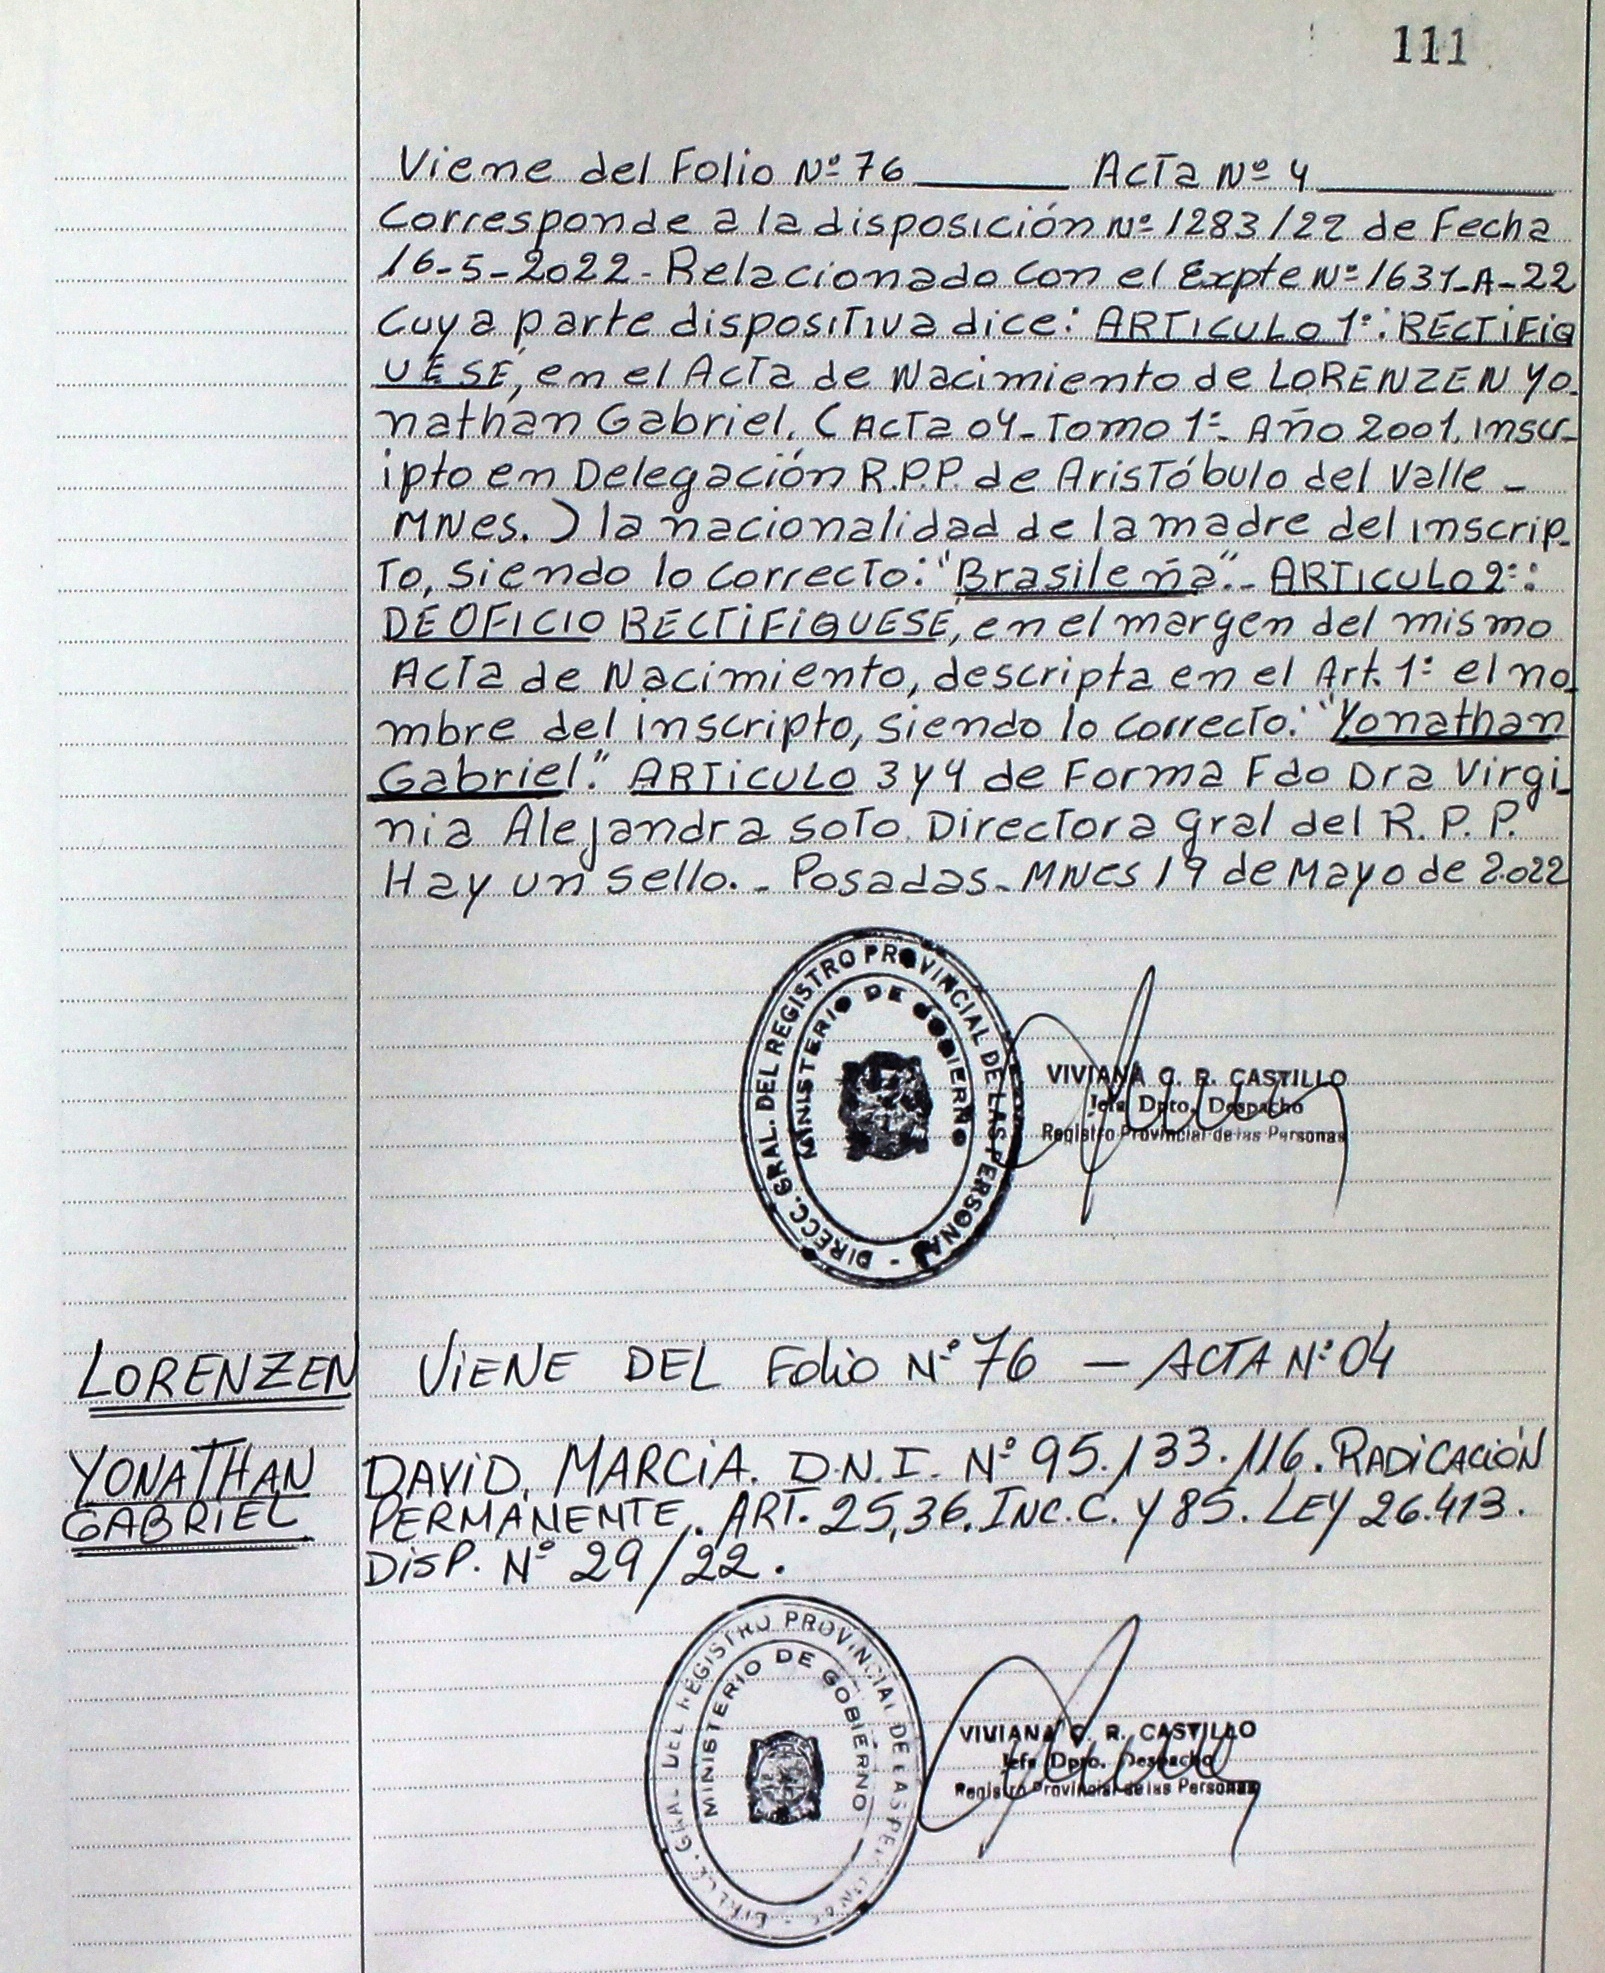 111
Viene del Folio Nº 76 ______ Acta Nº 4 ______
Corresponde a la disposición Nº 1283/22 de Fecha
16-5-2022- Relacionado con el Expte Nº 1631-A-22
Cuya parte dispositiva dice: ARTICULO 1º: RECTIFIQ
UESE, en el Acta de Nacimiento de LORENZEN Yo-
nathan Gabriel. (Acta 04- Tomo 1º- Año 2001, inscr-
ipto en Delegación R.P.P. de Aristóbulo del Valle -
MNes.) la nacionalidad de la madre del inscrip-
to, siendo lo correcto: "Brasileña".- ARTICULO 2º:
DE OFICIO RECTIFIQUESE, en el margen del mismo
Acta de Nacimiento, descripta en el Art. 1º el no-
mbre del inscripto, siendo lo correcto: "Yonathan
Gabriel." ARTICULO 3 y 4 de Forma Fdo Dra Virgi-
nia Alejandra Soto Directora Gral del R.P.P.
Hay un sello. - Posadas - MNes 19 de Mayo de 2022
DIRECC. GRAL. DEL REGISTRO PROVINCIAL DE LAS PERSONAS -
MINISTERIO DE GOBIERNO
VIVIANA C. R. CASTILLO
Jefa Dpto. Despacho
Registro Provincial de las Personas
LORENZEN VIENE DEL Folio Nº 76 — ACTA Nº 04
YONATHAN DAVID, MARCIA. D.N.I. Nº 95.133.116. RADICACIÓN
GABRIEL PERMANENTE. ART. 25,36. INC.C. Y 85. LEY 26.413.
DISP. Nº 29/22.
GRAL DEL REGISTRO PROVINCIAL DE LAS
MINISTERIO DE GOBIERNO
VIVIANA C. R. CASTILLO
Jefa Dpto. Despacho
Registro Provincial de las Personas